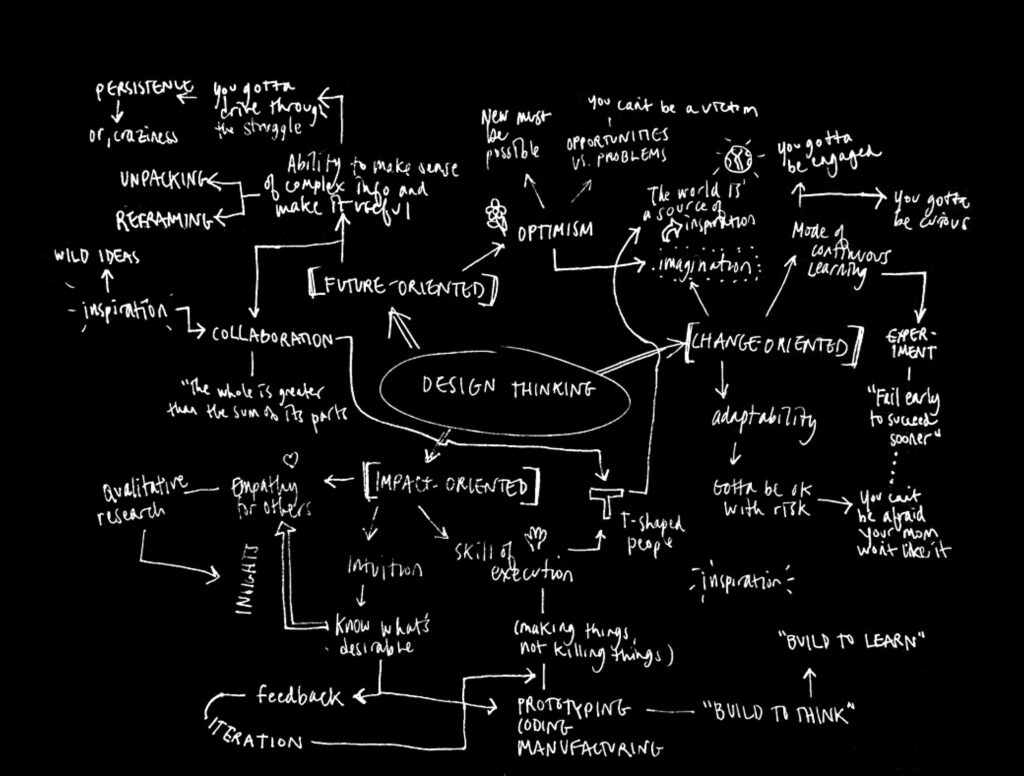 PERSISTENCE
or, craziness
you gotta
drive through
the struggle
UNPACKING
REFRAMING
Ability to make sense
of complex info and
make it useful
New must
be
possible
you can't be a victim
OPPORTUNITIES
VS. PROBLEMS
OPTIMISM
The world is
a source of
inspiration
imagination
you gotta
be engaged
you gotta
be curious
Mode of
continuous
learning
WILD IDEAS
inspiration
[FUTURE-ORIENTED]
COLLABORATION
"The whole is greater
than the sum of its parts
DESIGN THINKING
[CHANGE-ORIENTED]
EXPER-
IMENT
"Fail early
to succeed
sooner"
adaptability
Gotta be ok
with risk
you can't
be afraid
your mom
won't like it
qualitative
research
Empathy
for others
[IMPACT-ORIENTED]
T-shaped
people
INSIGHTS
Intuition
skill of
execution
inspiration
know what's
desirable
(making things,
not killing things)
"BUILD TO LEARN"
feedback
ITERATION
PROTOTYPING
CODING
MANUFACTURING
"BUILD TO THINK"